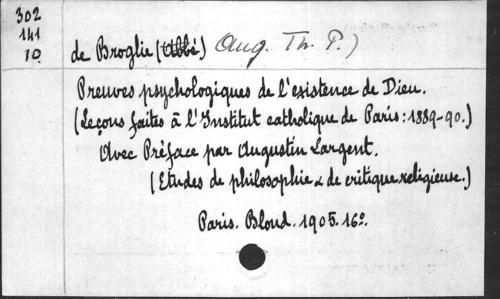 302
141
10
de Broglie (Abbé) Aug. Th. P.)
Preuves psychologiques de l'existence de Dieu.
(Leçons faites à l'Institut catholique de Paris: 1889-90.)
Avec Préface par Augustin Largent.
(Etudes de philosophie & de critique religieuse.)
Paris. Bloud. 1905. 16º.